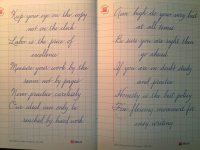 Keep your eye on the copy
not on the clock
Labor is the price of
excellence
Measure your work by the
sense not by pages
Never practice carelessly
Our ideal can only be
reached by hard work
Aim high do your very best
at all times
Be sure you are right then
go ahead
If you are in doubt study
and practice
Honesty is the best policy
Free flowing movement for
easy writing